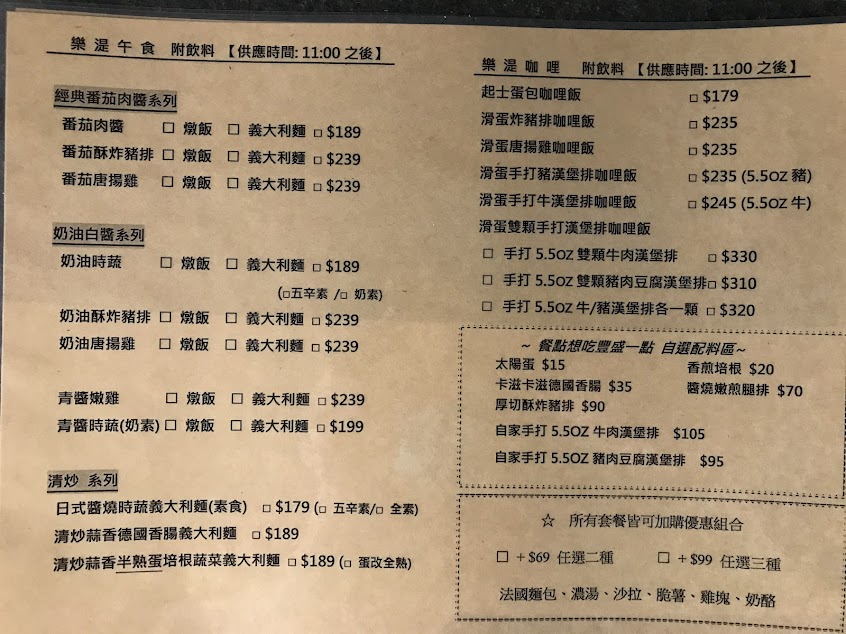 樂湜午食 附飲料 【供應時間: 11:00 之後】
經典番茄肉醬系列
番茄肉醬 □ 燉飯 □ 義大利麵 □ $189
番茄酥炸豬排 □ 燉飯 □ 義大利麵 □ $239
番茄唐揚雞 □ 燉飯 □ 義大利麵 □ $239
奶油白醬系列
奶油時蔬 □ 燉飯 □ 義大利麵 □ $189
(□五辛素 /□ 奶素)
奶油酥炸豬排 □ 燉飯 □ 義大利麵 □ $239
奶油唐揚雞 □ 燉飯 □ 義大利麵 □ $239
青醬嫩雞 □ 燉飯 □ 義大利麵 □ $239
青醬時蔬(奶素) □ 燉飯 □ 義大利麵 □ $199
清炒 系列
日式醬燒時蔬義大利麵(素食) □ $179 (□ 五辛素/□ 全素)
清炒蒜香德國香腸義大利麵 □ $189
清炒蒜香半熟蛋培根蔬菜義大利麵 □ $189 (□ 蛋改全熟)
樂湜咖哩 附飲料 【供應時間: 11:00 之後】
起士蛋包咖哩飯 □ $179
滑蛋炸豬排咖哩飯 □ $235
滑蛋唐揚雞咖哩飯 □ $235
滑蛋手打豬漢堡排咖哩飯 □ $235 (5.5OZ 豬)
滑蛋手打牛漢堡排咖哩飯 □ $245 (5.5OZ 牛)
滑蛋雙顆手打漢堡排咖哩飯
□ 手打 5.5OZ 雙顆牛肉漢堡排 □ $330
□ 手打 5.5OZ 雙顆豬肉豆腐漢堡排□ $310
□ 手打 5.5OZ 牛/豬漢堡排各一顆 □ $320
~ 餐點想吃豐盛一點 自選配料區~
太陽蛋 $15 香煎培根 $20
卡滋卡滋德國香腸 $35 醬燒嫩煎腿排 $70
厚切酥炸豬排 $90
自家手打 5.5OZ 牛肉漢堡排 $105
自家手打 5.5OZ 豬肉豆腐漢堡排 $95
☆ 所有套餐皆可加購優惠組合
□ +$69 任選二種 □ +$99 任選三種
法國麵包、濃湯、沙拉、脆薯、雞塊、奶酪